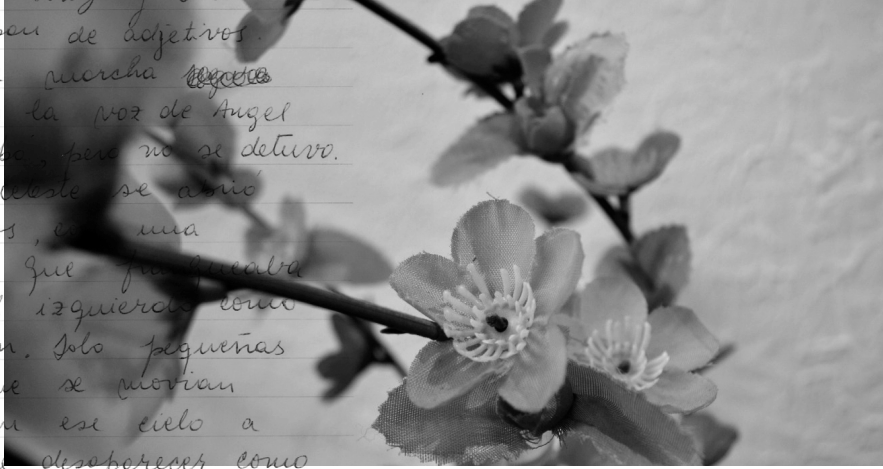 de adjetivos.
marcha
la voz de Angel
pero no se detuvo.
celeste se abrió
s, una
que franqueaba
izquierdo como
n. Solo pequeñas
se movian
ese cielo a
desaparecer como